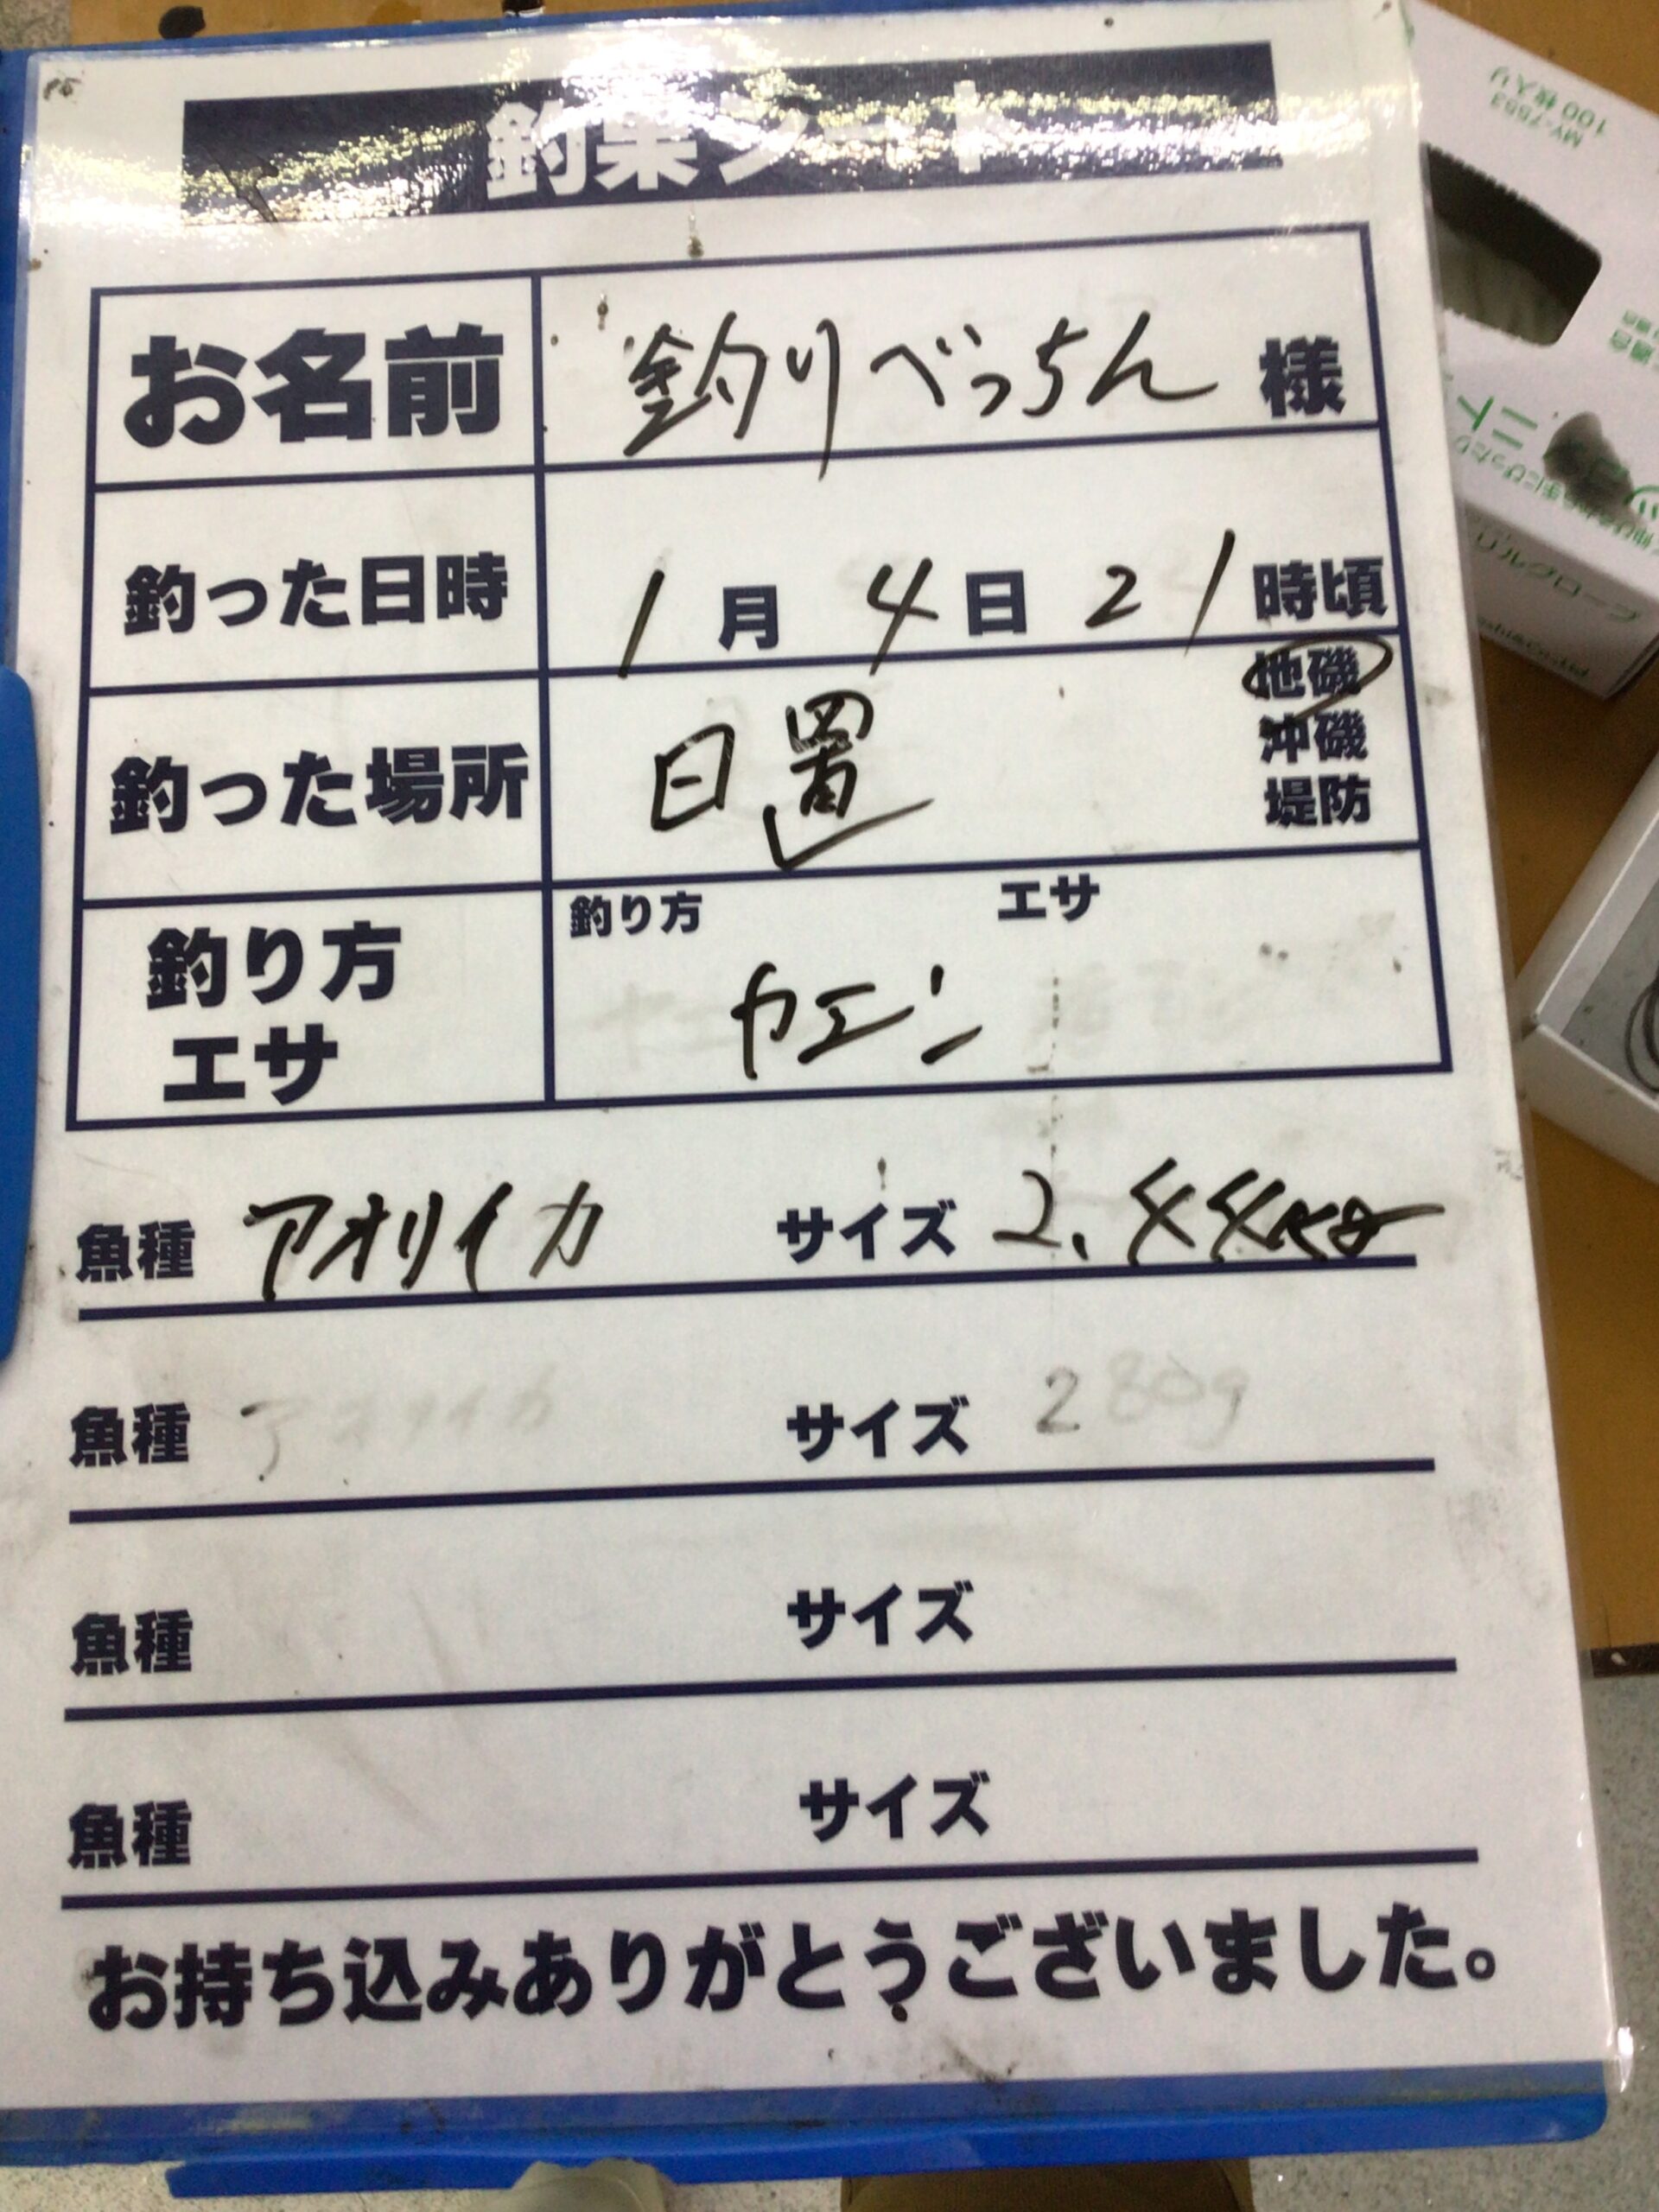 釣果シート
お名前 釣りべっちん 様
釣った日時 1月4日21時頃
釣った場所 日置 地磯
沖磯
堤防
釣り方 エサ
釣り方 カエン
エサ
魚種 アオリイカ サイズ 2.44kg
魚種 アオリイカ サイズ 280g
魚種 サイズ
魚種 サイズ
お持ち込みありがとうございました。
MY-7553
100枚入り